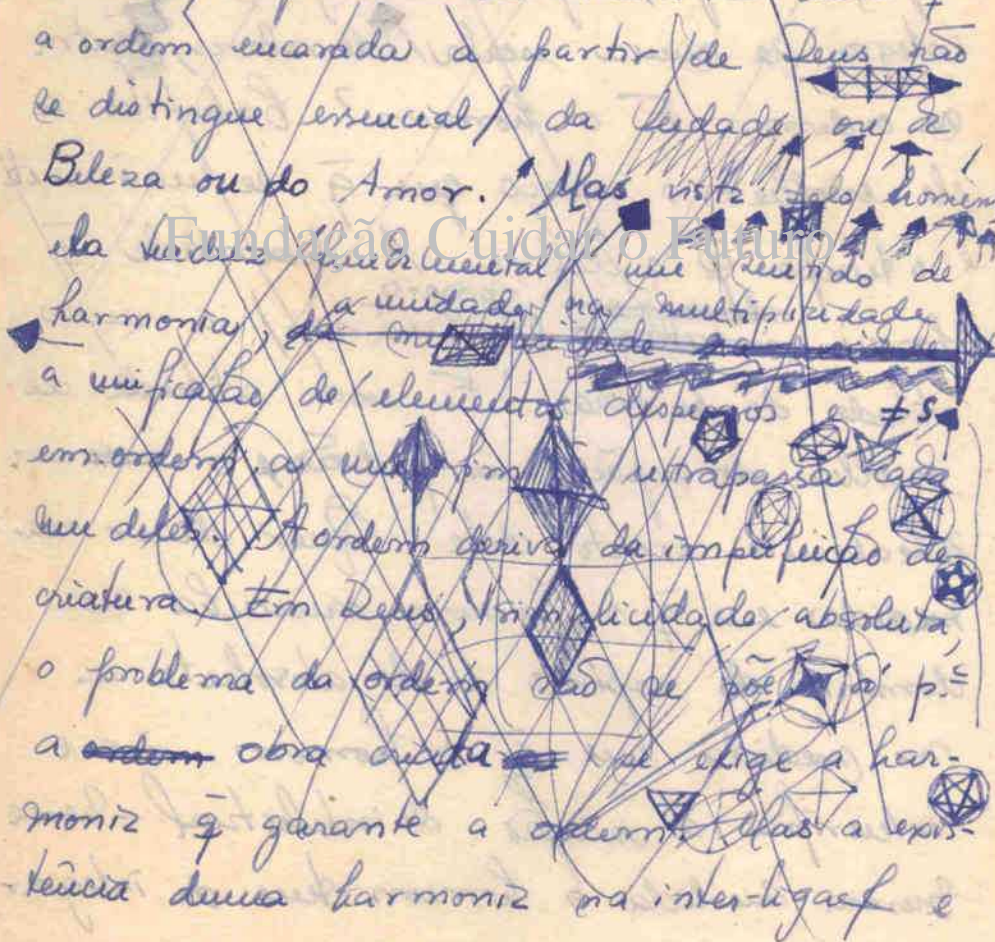 a ordem encarada a partir de Deus não
se distingue essencial/ da Verdade, ou da
Beleza ou do Amor. Mas vista pelo homem
ela um sentido de
Fundação Cuidar o Futuro
harmonia, a unidade na multiplicidade
a unificação de elementos dispersos e ≠s,
em ordem a um fim ultrapassa cada
um deles. A ordem deriva da imperfeição da
criatura. Em Deus, simplicidade absoluta,
o problema da ordem não se põe. Já pª
a ordem obra criada se exige a har-
moniz q̄ garante a ordem. Mas a exis-
tência duma harmoniz na inter-ligaç e